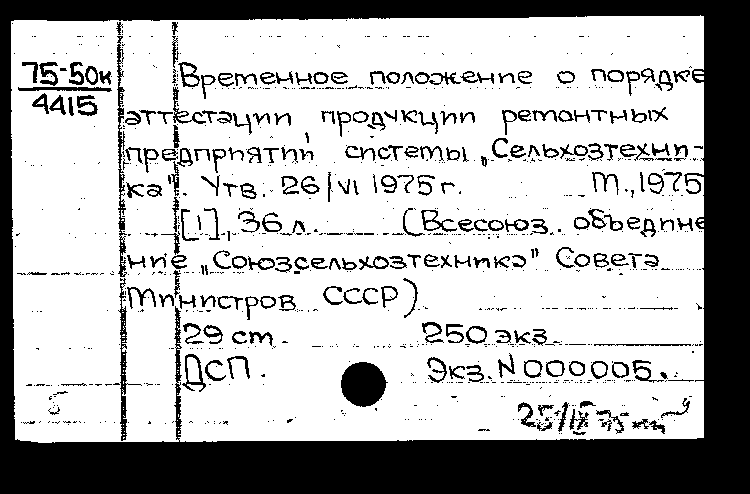 75-50к
4415
Временное положение о порядке
аттестации продукции ремонтных
предприятий системы „Сельхозтехни-
ка". Утв. 26/VI 1975 г. М., 1975
[1], 36 л. (Всесоюз. объедине
ние „Союзсельхозтехника" Совета
Министров СССР)
29 см. 250 экз.
ДСП. Экз. N 000005.
Б
25/IX 75